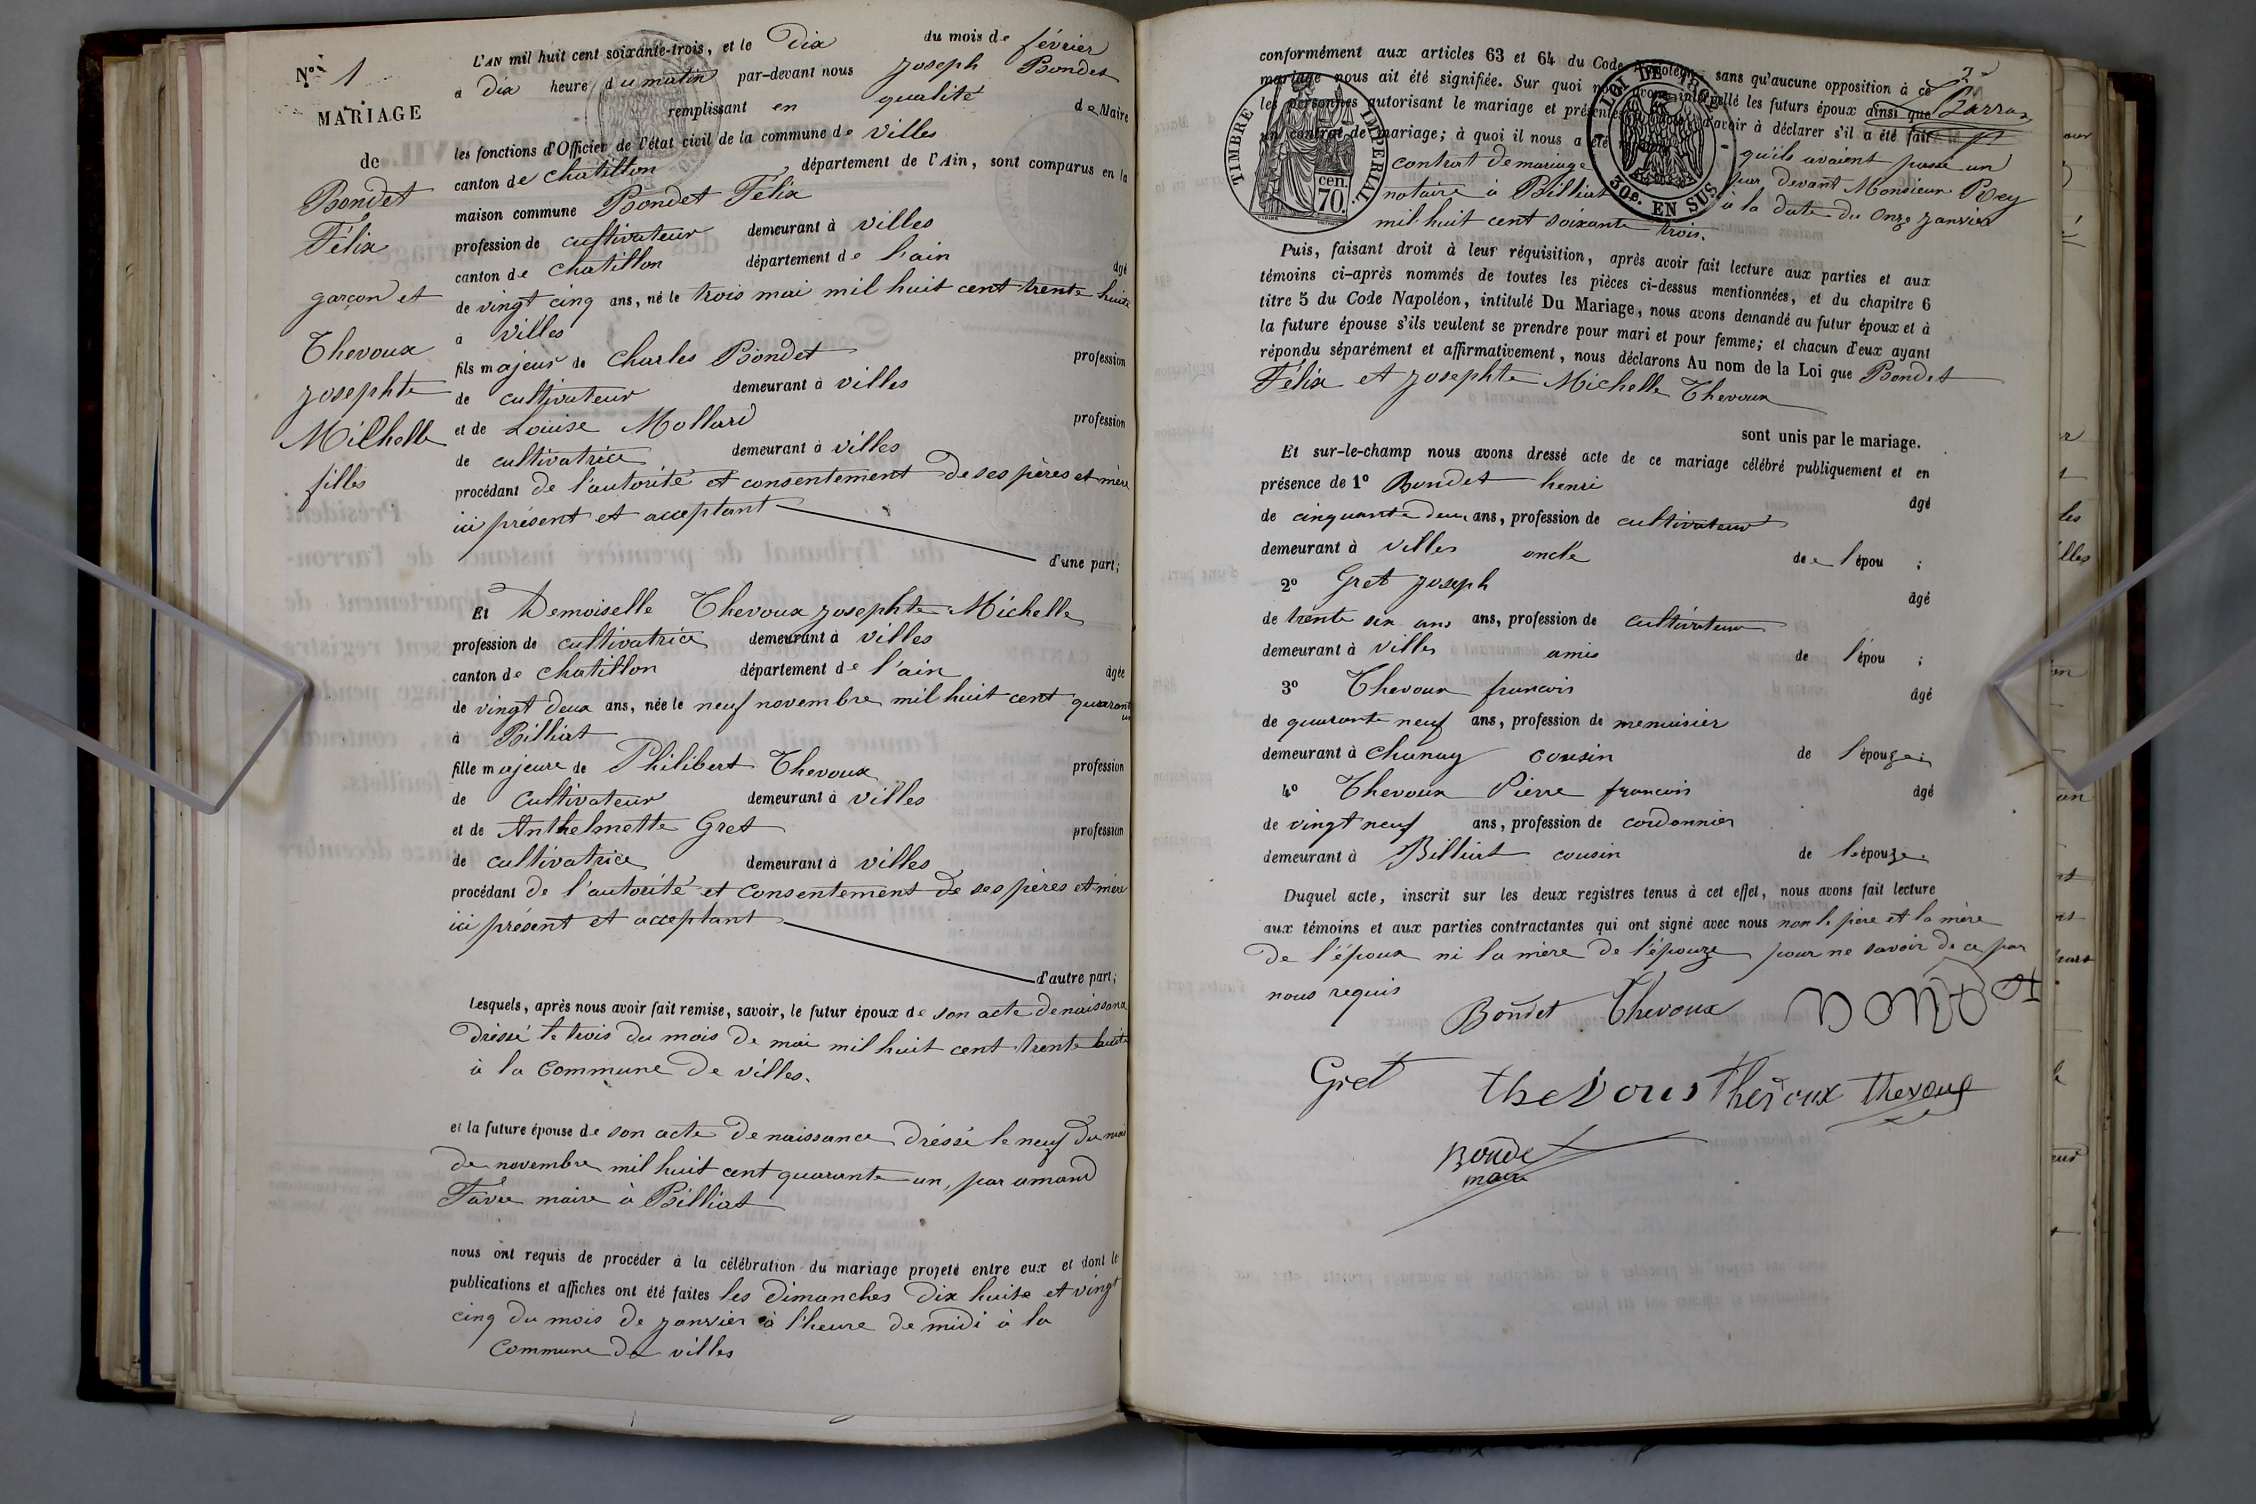 N° 1
MARIAGE
de
Bondet
Félix
garçon et
Thevoux
Josephte
Michelle
filles
L'AN mil huit cent soixante-trois, et le Dix du mois de février
a Dix heure du matin par-devant nous Joseph Bondet
remplissant en qualité de Maire
les fonctions d'Officier de l'état civil de la commune de Villes
canton de Chatillon, département de l'Ain, sont comparus en la
maison commune Bondet Félix
profession de cultivateur demeurant à Villes
canton de Chatillon département de l'ain âgé
de vingt cinq ans, né le trois mai mil huit cent trente huit
à Villes
fils majeur de Charles Bondet profession
de cultivateur demeurant à Villes
et de Louise Mollard profession
de cultivatrice demeurant à Villes
procédant de l'autorité et consentement de ses pères et mère
ici présent et acceptant
d'une part;
Et Demoiselle Thevoux Josephte Michelle
profession de cultivatrice demeurant à Villes
canton de Chatillon département de l'ain âgée
de vingt deux ans, née le neuf novembre mil huit cent quarante
un
à Billiat
fille majeure de Philibert Thevoux profession
de Cultivateur demeurant à Villes
et de Anthelmette Gret profession
de cultivatrice demeurant à Villes
procédant de l'autorité et consentement de ses pères et mère
ici présent et acceptant
d'autre part;
Lesquels, après nous avoir fait remise, savoir, le futur époux de son acte de naissance
dréssé le trois du mois de mai mil huit cent trente huit
à la Commune de villes.
et la future épouse de son acte de naissance dréssé le neuf du mois
de novembre mil huit cent quarante un, par amand
Favre maire à Billiat
nous ont requis de procéder à la célébration du mariage projeté entre eux et dont le
publications et affiches ont été faites les dimanches dix huite et vingt
cinq du mois de janvier à l'heure de midi à la
Commune de villes
conformément aux articles 63 et 64 du Code Napoléon, sans qu'aucune opposition à ce
mariage nous ait été signifiée. Sur quoi nous avons interpellé les futurs époux ainsi que
les personnes autorisant le mariage et présentes d'avoir à déclarer s'il a été fait
un contrat de mariage; à quoi il nous a été qu'ils avaient passé un
contrat de mariage par devant Monsieur Rey
notaire à Billiat à la date du Onze janvier
mil huit cent soixante trois.
TIMBRE IMPERIAL.
70 cen.
LOI DE
30e. EN SUS
Puis, faisant droit à leur réquisition, après avoir fait lecture aux parties et aux
témoins ci-après nommés de toutes les pièces ci-dessus mentionnées, et du chapitre 6
titre 5 du Code Napoléon, intitulé Du Mariage, nous avons demandé au futur époux et à
la future épouse s'ils veulent se prendre pour mari et pour femme; et chacun d'eux ayant
répondu séparément et affirmativement, nous déclarons Au nom de la Loi que Bondet
Félix et Josephte Michelle Thevoux
sont unis par le mariage.
Et sur-le-champ nous avons dressé acte de ce mariage célébré publiquement et en
présence de 1° Bondet henri âgé
de cinquante deux ans, profession de cultivateur
demeurant à Villes oncle de l'épou ;
2° Gret Joseph âgé
de trente six ans ans, profession de cultivateur
demeurant à Villes amis de l'épou ;
3° Thevoux francois âgé
de quarante neuf ans, profession de menuisier
demeurant à Chanay cousin de l'épouze;
4° Thevoux Pierre francois âgé
de vingt neuf ans, profession de cordonnier
demeurant à Billiat cousin de l'épouze
Duquel acte, inscrit sur les deux registres tenus à cet effet, nous avons fait lecture
aux témoins et aux parties contractantes qui ont signé avec nous non le père et la mère
de l'époux ni la mère de l'épouze pour ne savoir de ce par
nous requis
Bondet Thevoux
Gret Thevoux Thevoux Thevoux
Bondet
maire